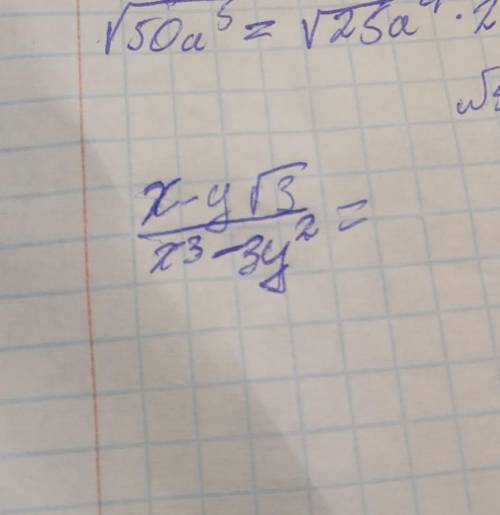 √50a⁵ = √25a⁴ · 2
√
x - y√3
x³ - 3y² =